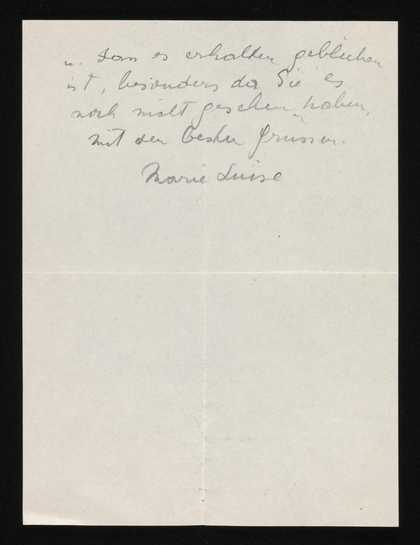 u. dass es erhalten geblieben
ist, besonders da Sie es
noch nicht gesehen haben.
Mit den besten Grüssen.
Marie Luise